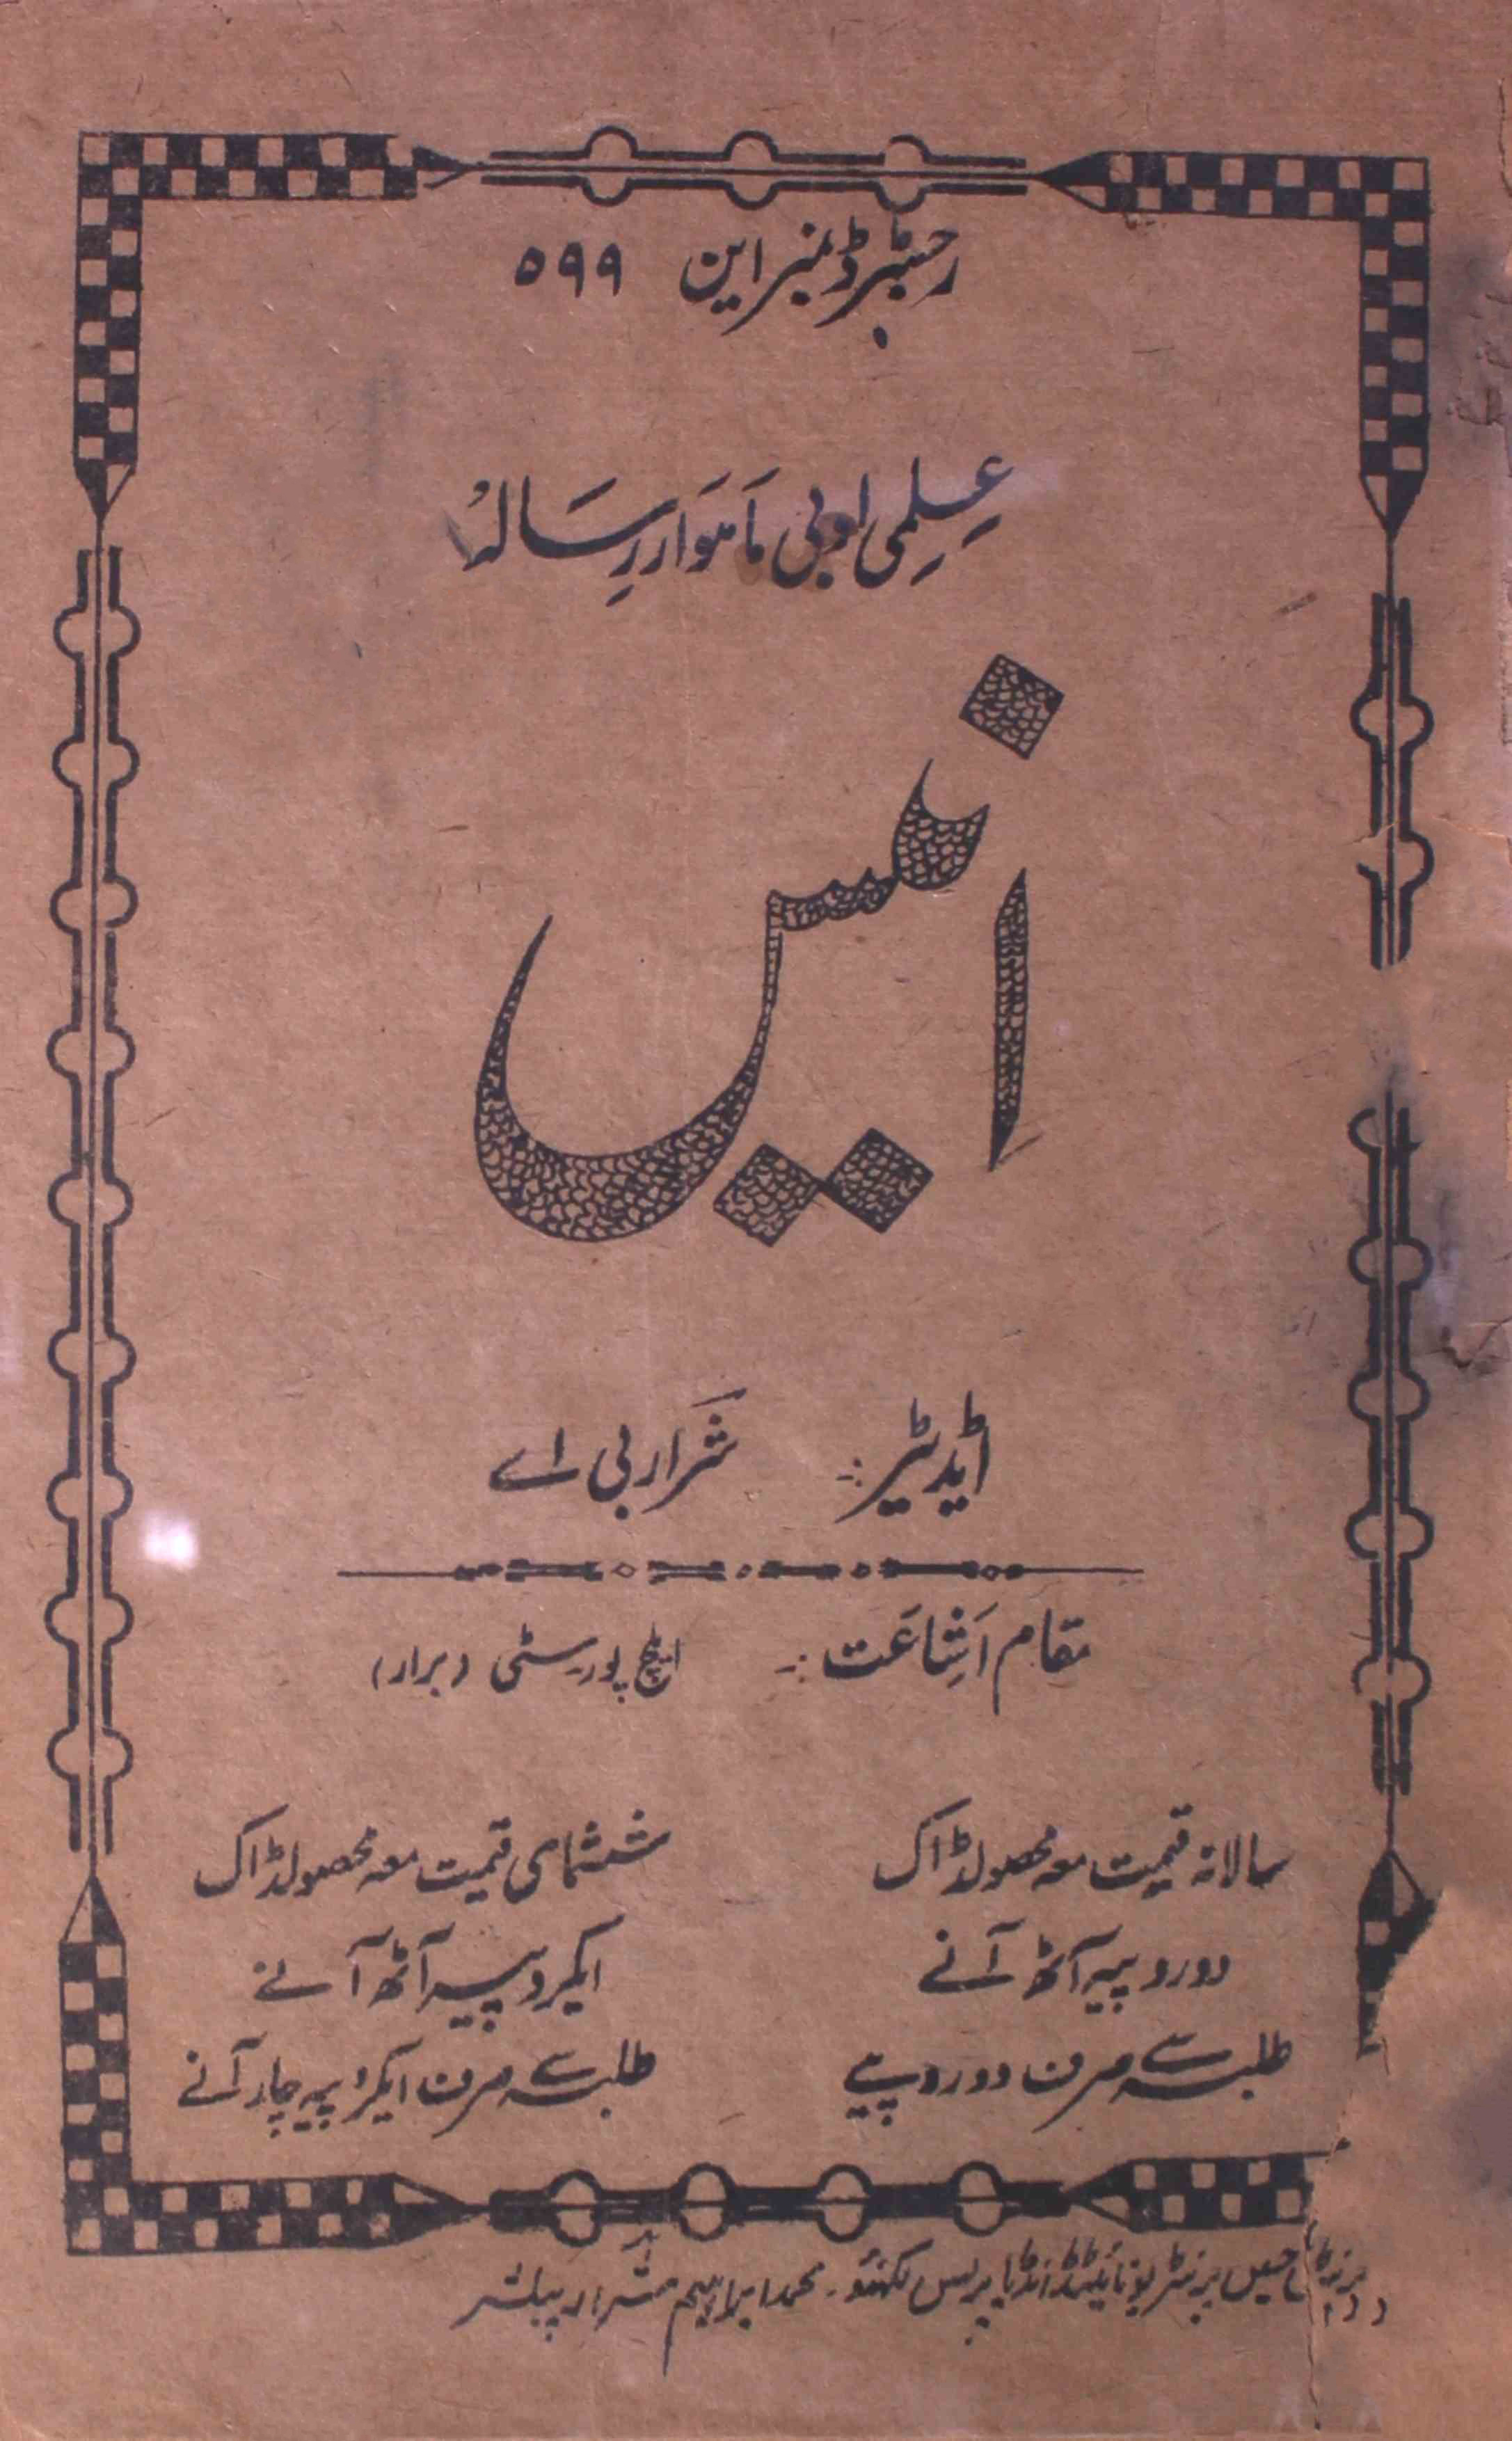 رجسٹرڈ نمبر این ۵۹۹
عِلمِی ادبی مَاہوَار رِسَالہُ
انیس
اڈیٹر:۔ شَرار بی اے
مقام اَشِاعَت:۔ ایلچ پور سٹی (برار)
سالانہ قیمت معہ محصولڈاک
دو روپیہ آٹھ آنے
طلبہ سے صرف دو روپیے
ششماہی قیمت معہ محصولڈاک
ایکروپیہ آٹھ آنے
طلبہ سے صرف ایکروپیہ چار آنے
حسین پرنٹر یونائیٹڈ انڈیا پریس لکھنؤ۔ محمد ابراہیم شرار پبلشر